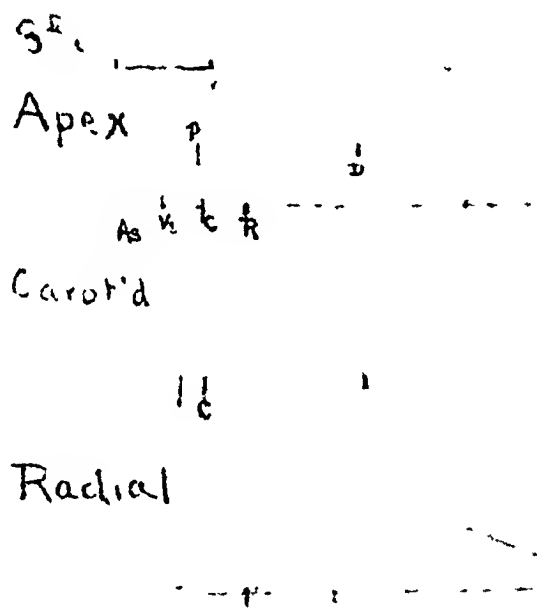 Apex
P
D
As V₂ C R
Carot'd
C
Radial